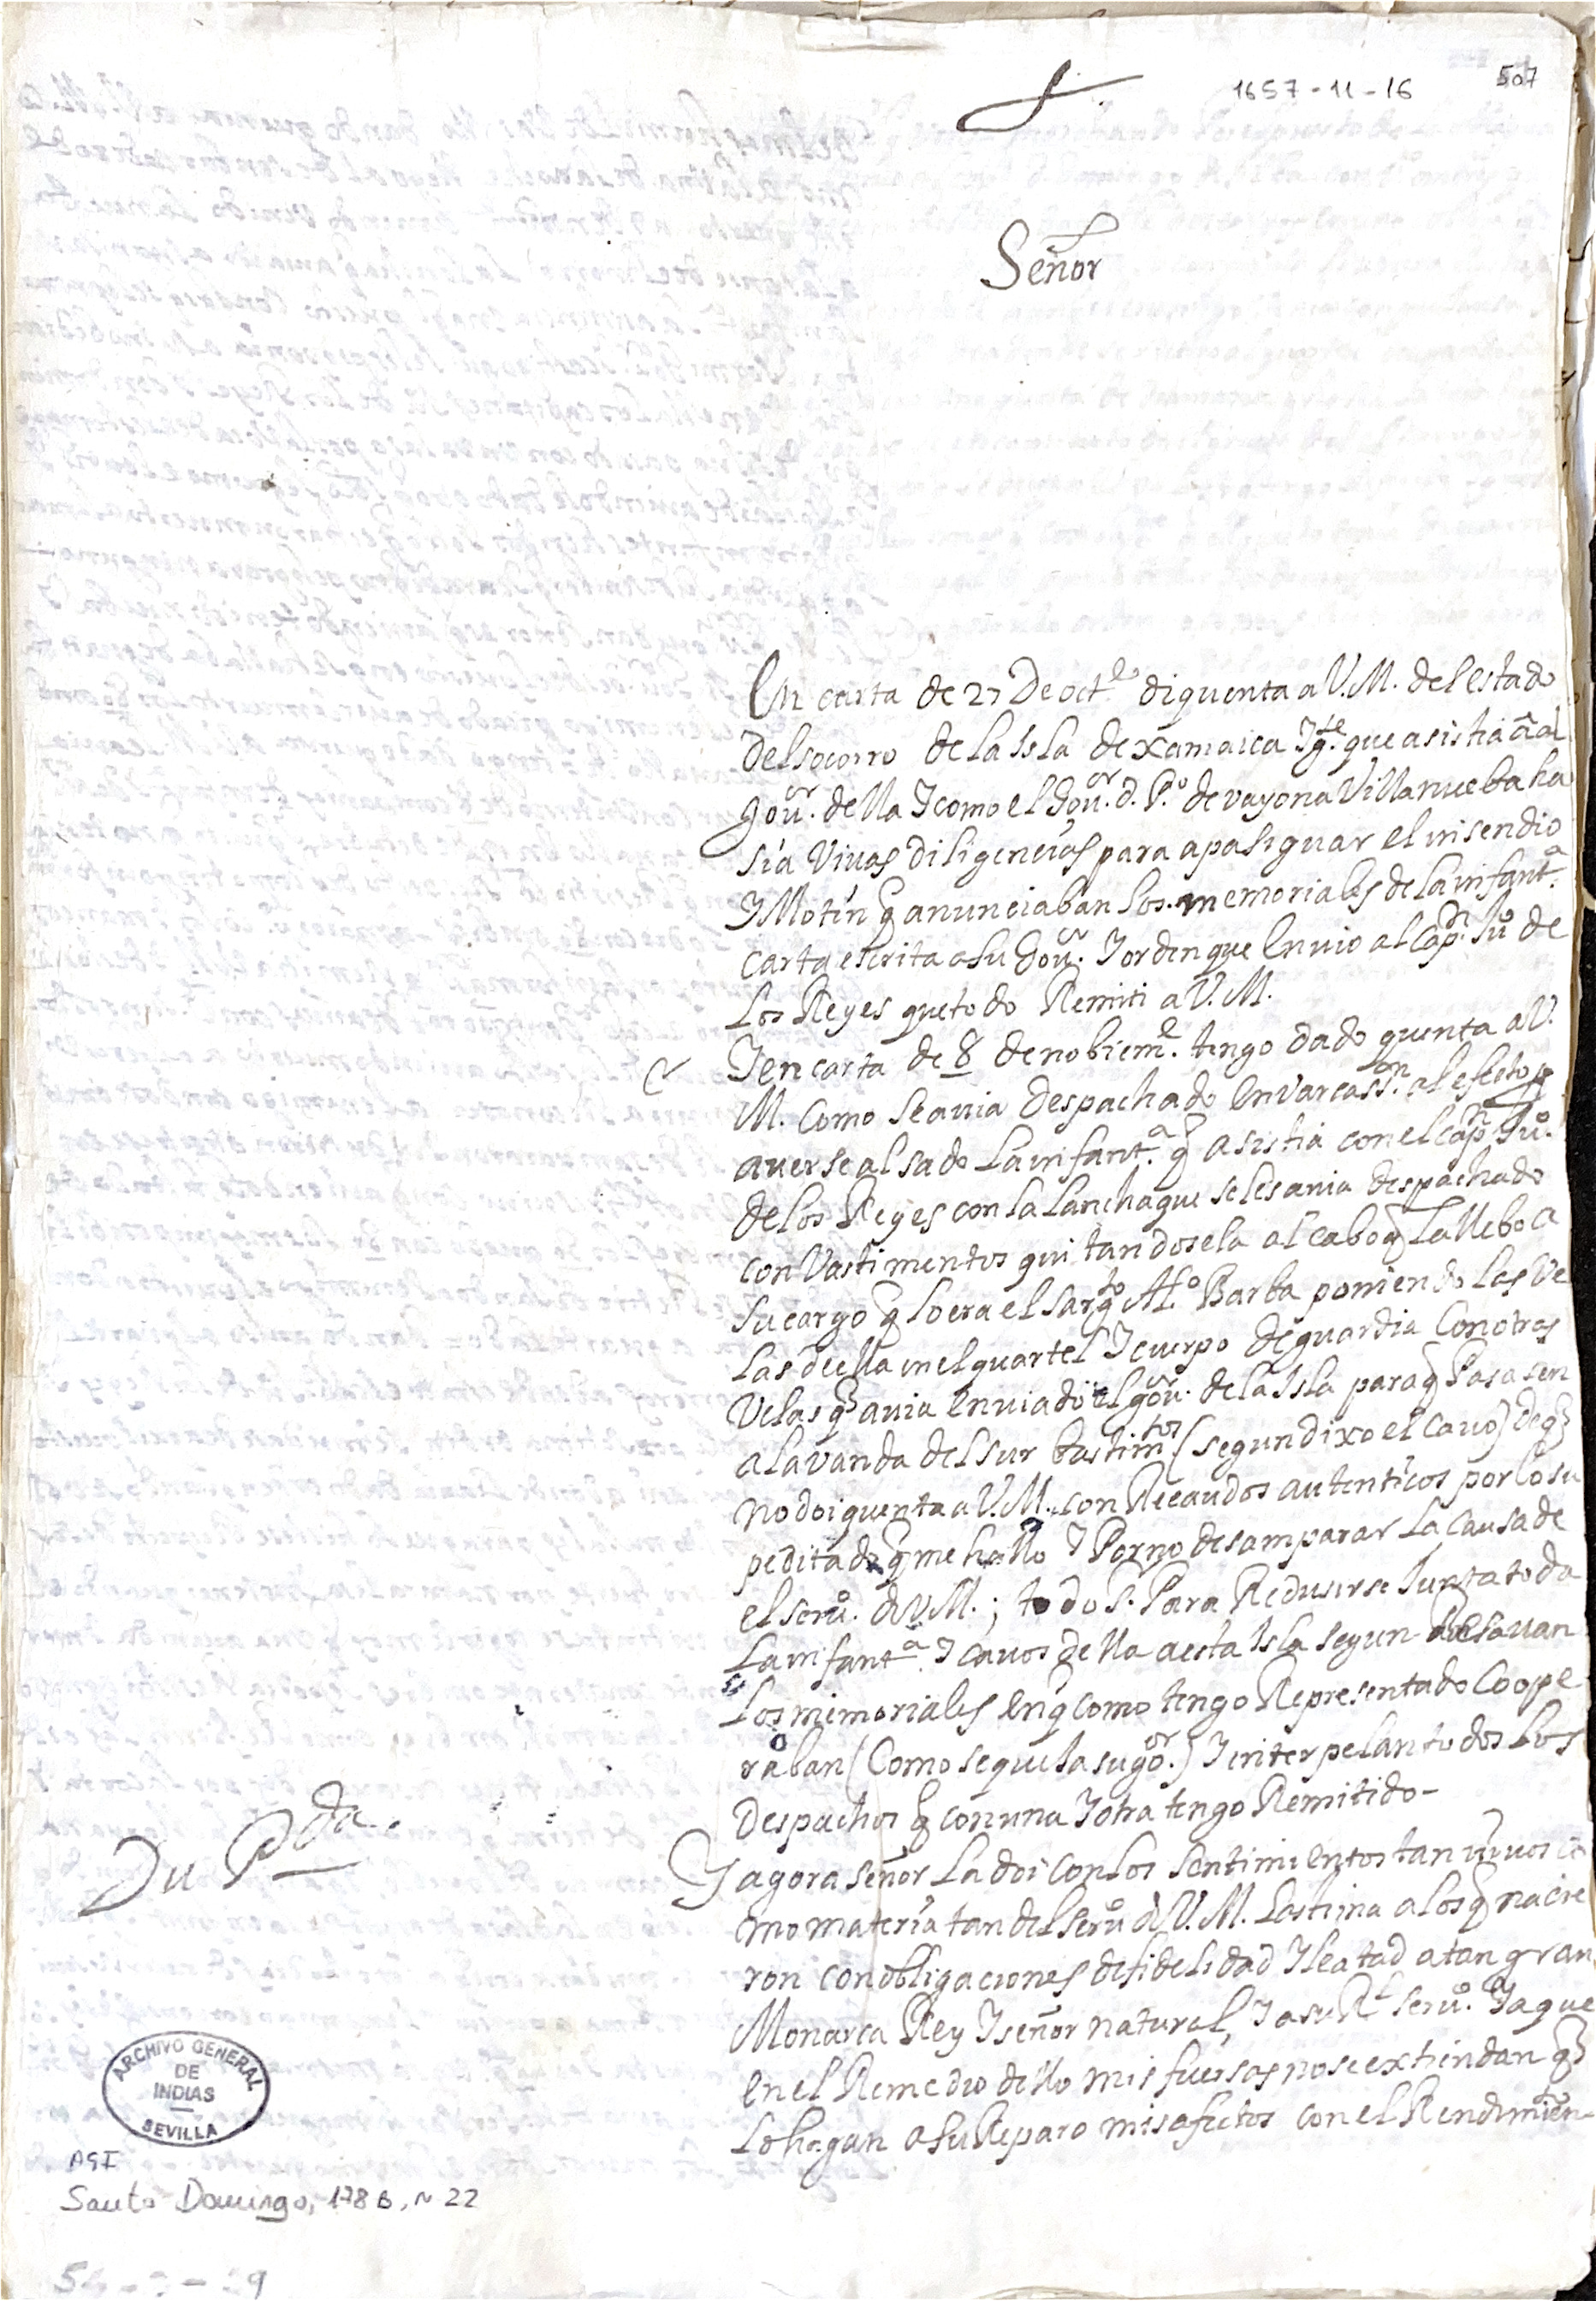 1657-11-16
507
Señor
En carta de 27 De oct.e di quenta a V.M. del estado
del socorro de la Isla de xamaica J g.te que asistia â al
gou.or della J como el Gou.or d. P.o de vayona Villanueba ha
sia Vivas diligencias para apasiguar el insendio
J Motin q anunciaban los memoriales de la infant.a
carta escrita a su Gou.or J orden que Envio al Cap.n Ju.o de
los Reyes que todo Remiti a V.M.
J en carta de 8 de nobiem.e tengo dado quenta a V.
M. Como se avia despachado Envarcass.on al efecto p
averse alsado La infant.a q asistia con el cap.n Ju.o
de los Reyes con la Lancha que se les avia despachado
con Vastimentos quitandosela al cabo q La llebo a
su cargo q lo era el sarg.to Al.o Barba poniendo las Ve
las de ella en el quartel J cuerpo de guardia Con otras
Velas q avia enviado el gou.or de la Isla para q Pasasen
a la vanda del sur bastim.tos (segun dixo el cavo) de q
no doi quenta a V.M. con Recaudos autenticos por lo su
peditado q me hallo J Por no desamparar la causa de
el seru.o d V.M.; todo S. Para Redusirse Junta toda
La infant.a J cavos della a esta Isla segun
Los memoriales en q como tengo Representado Coope
raban (Como se queha su go.or) J interpelan todos los
despachos q con una J otra tengo Remitido-
J agora señor La doi con los sentimientos tan vivos co
mo materia tan del seru.o d V.M. Lastima a los q nacie
ron con obligaciones de fidelidad J leatad a tan gran
Monarca Rey J señor natural, J a su R.l seru.o Ja que
en el Remedio dello mis fuersas no se extiendan q
Lo hagan a su Reparo mis afectos con el Rendimien-
Du P.da
ARCHIVO GENERAL
DE
INDIAS
SEVILLA
AGI
Santo Domingo, 178 B, N 22